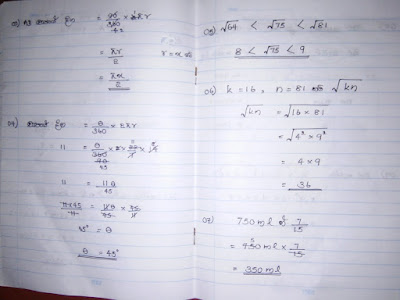 = 90/360 × 2πr
= πr/2 r = a
= πa/2
= θ/360 × 2πr
11 = θ/360 × 2 × 22/7 ×
11 = 11θ/45
11×45/11 = 11θ/45 × 45/11
45° = θ
θ = 45°
05) √64 < √75 < √81
8 < √75 < 9
06) k = 16, n = 81 √kn
√kn = √16 × 81
= √4² × 9²
= 4 × 9
= 36
07) 750 ml 7/15
= 750 ml × 7/15
= 350 ml